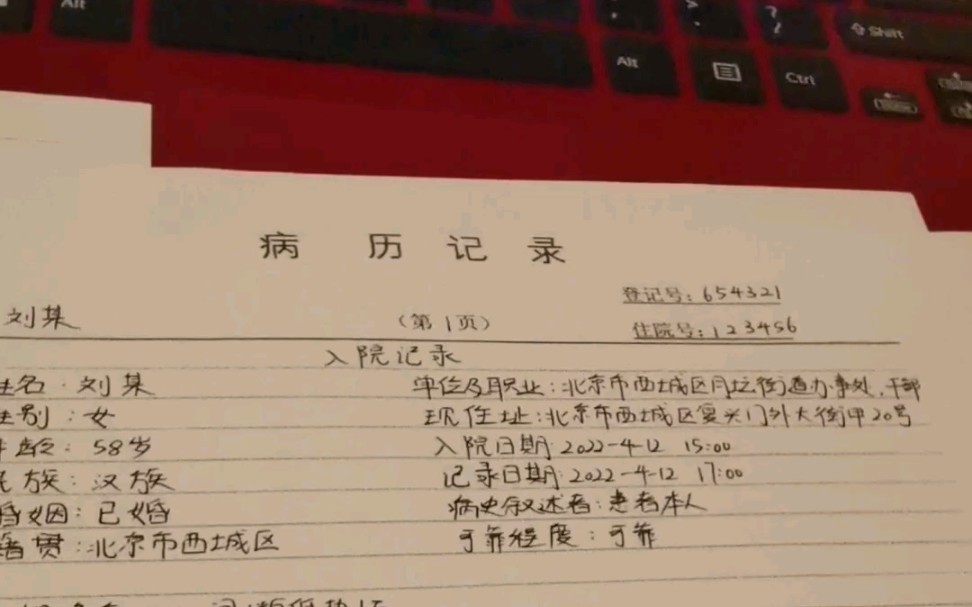 Alt
Alt
Ctrl
Shift
病 历 记 录
登记号：654321
刘某
（第1页）
住院号：123456
入院记录
姓名：刘某 单位及职业：北京市西城区月坛街道办事处，干部
性别：女 现住址：北京市西城区复兴门外大街甲20号
年龄：58岁 入院日期：2022-4-12 15:00
民族：汉族 记录日期：2022-4-12 17:00
婚姻：已婚 病史叙述者：患者本人
籍贯：北京市西城区 可靠程度：可靠